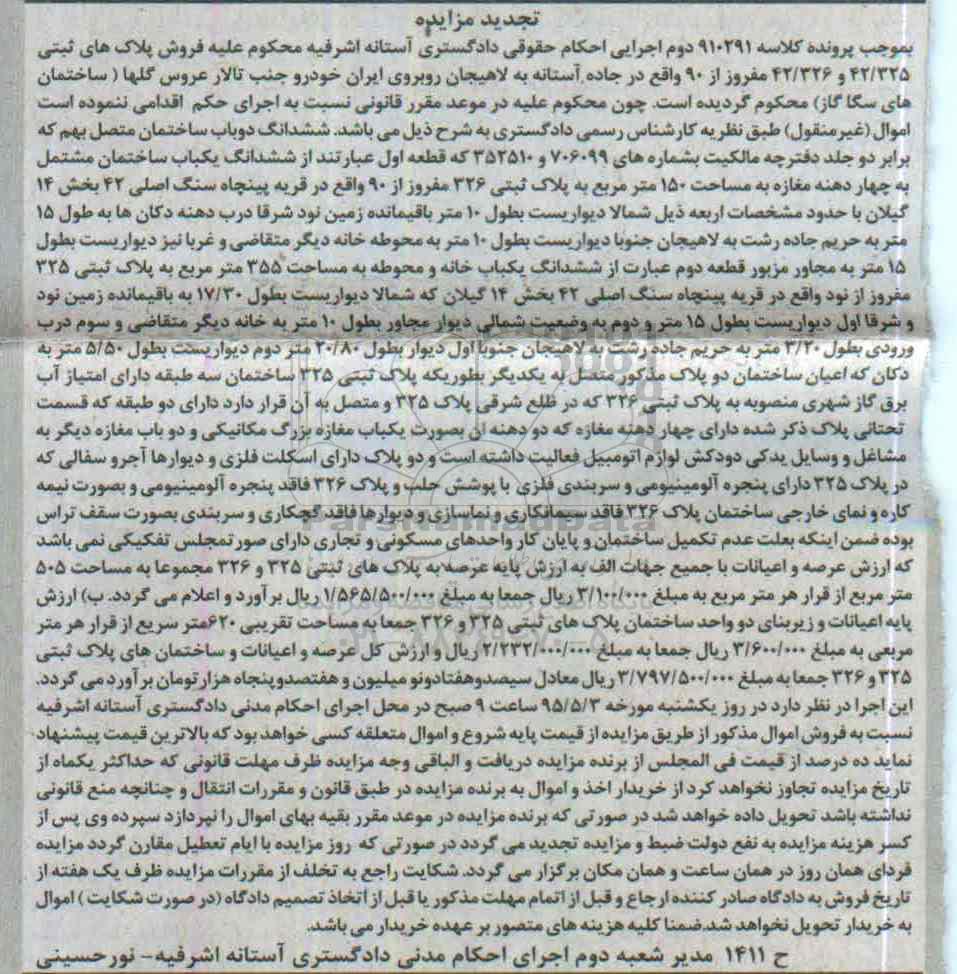 تجدید مزایده
بموجب پرونده کلاسه ۹۱۰۲۹۱ دوم اجرایی احکام حقوقی دادگستری آستانه اشرفیه محکوم علیه فروش پلاک های ثبتی
۴۲/۳۲۵ و ۴۲/۳۲۶ مفروز از ۹۰ واقع در جاده آستانه به لاهیجان روبروی ایران خودرو جنب تالار عروس گلها ( ساختمان
های سگا گاز) محکوم گردیده است. چون محکوم علیه در موعد مقرر قانونی نسبت به اجرای حکم اقدامی ننموده است
اموال (غیرمنقول) طبق نظریه کارشناس رسمی دادگستری به شرح ذیل می باشد. ششدانگ دوباب ساختمان متصل بهم که
برابر دو جلد دفترچه مالکیت بشماره های ۷۰۶۰۹۹ و ۳۵۲۵۱۰ که قطعه اول عبارتند از ششدانگ یکباب ساختمان مشتمل
به چهار دهنه مغازه به مساحت ۱۵۰ متر مربع به پلاک ثبتی ۳۲۶ مفروز از ۹۰ واقع در قریه پینچاه سنگ اصلی ۴۲ بخش ۱۴
گیلان با حدود مشخصات اربعه ذیل شمالا دیواریست بطول ۱۰ متر باقیمانده زمین نود شرقا درب دهنه دکان ها به طول ۱۵
متر به حریم جاده رشت به لاهیجان جنوبا دیواریست بطول ۱۰ متر به محوطه خانه دیگر متقاضی و غربا نیز دیواریست بطول
۱۵ متر به مجاور مزبور قطعه دوم عبارت از ششدانگ یکباب خانه و محوطه به مساحت ۳۵۵ متر مربع به پلاک ثبتی ۳۲۵
مفروز از نود واقع در قریه پینچاه سنگ اصلی ۴۲ بخش ۱۴ گیلان که شمالا دیواریست بطول ۱۷/۳۰ به باقیمانده زمین نود
و شرقا اول دیواریست بطول ۱۵ متر و دوم به وضعیت شمالی دیوار مجاور بطول ۱۰ متر به خانه دیگر متقاضی و سوم درب
ورودی بطول ۳/۲۰ متر به حریم جاده رشت به لاهیجان جنوبا اول دیوار بطول ۲۰/۸۰ متر دوم دیواریست بطول ۵/۵۰ متر به
دکان که اعیان ساختمان دو پلاک مذکور متصل به یکدیگر بطوریکه پلاک ثبتی ۳۲۵ ساختمان سه طبقه دارای امتیاز آب
برق گاز شهری منصوبه به پلاک ثبتی ۳۲۶ که در ظلع شرقی پلاک ۳۲۵ و متصل به آن قرار دارد دارای دو طبقه که قسمت
تحتانی پلاک ذکر شده دارای چهار دهنه مغازه که دو دهنه آن بصورت یکباب مغازه بزرگ مکانیکی و دو باب مغازه دیگر به
مشاغل و وسایل یدکی دودکش لوازم اتومبیل فعالیت داشته است و دو پلاک دارای اسکلت فلزی و دیوارها آجرو سفالی که
در پلاک ۳۲۵ دارای پنجره آلومینیومی و سربندی فلزی با پوشش حلب و پلاک ۳۲۶ فاقد پنجره آلومینیومی و بصورت نیمه
کاره و نمای خارجی ساختمان پلاک ۳۲۶ فاقد سیمانکاری و نماسازی و دیوارها فاقد گچکاری و سربندی بصورت سقف تراس
بوده ضمن اینکه بعلت عدم تکمیل ساختمان و پایان کار واحدهای مسکونی و تجاری دارای صورتمجلس تفکیکی نمی باشد
که ارزش عرصه و اعیانات با جمیع جهات الف به ارزش پایه عرصه به پلاک های ثبتی ۳۲۵ و ۳۲۶ مجموعا به مساحت ۵۰۵
متر مربع از قرار هر متر مربع به مبلغ ۳/۱۰۰/۰۰۰ ریال جمعا به مبلغ ۱/۵۶۵/۵۰۰/۰۰۰ ریال برآورد و اعلام می گردد. ب) ارزش
پایه اعیانات و زیربنای دو واحد ساختمان پلاک های ثبتی ۳۲۵ و ۳۲۶ جمعا به مساحت تقریبی ۶۲۰متر سریع از قرار هر متر
مربعی به مبلغ ۳/۶۰۰/۰۰۰ ریال جمعا به مبلغ ۲/۲۳۲/۰۰۰/۰۰۰ ریال و ارزش کل عرصه و اعیانات و ساختمان های پلاک ثبتی
۳۲۵ و ۳۲۶ جمعا به مبلغ ۳/۷۹۷/۵۰۰/۰۰۰ ریال معادل سیصدوهفتادونو میلیون و هفتصدوپنجاه هزار تومان برآورد می گردد.
این اجرا در نظر دارد در روز یکشنبه مورخه ۹۵/۵/۳ ساعت ۹ صبح در محل اجرای احکام مدنی دادگستری آستانه اشرفیه
نسبت به فروش اموال مذکور از طریق مزایده از قیمت پایه شروع و اموال متعلقه کسی خواهد بود که بالاترین قیمت پیشنهاد
نماید ده درصد از قیمت فی المجلس از برنده مزایده دریافت و الباقی وجه مزایده ظرف مهلت قانونی که حداکثر یکماه از
تاریخ مزایده تجاوز نخواهد کرد از خریدار اخذ و اموال به برنده مزایده در طبق قانون و مقررات انتقال و چنانچه منع قانونی
نداشته باشد تحویل داده خواهد شد در صورتی که برنده مزایده در موعد مقرر بقیه بهای اموال را نپردازد سپرده وی پس از
کسر هزینه مزایده به نفع دولت ضبط و مزایده تجدید می گردد در صورتی که روز مزایده با ایام تعطیل مقارن گردد مزایده
فردای همان روز در همان ساعت و همان مکان برگزار می گردد. شکایت راجع به تخلف از مقررات مزایده ظرف یک هفته از
تاریخ فروش به دادگاه صادر کننده ارجاع و قبل از اتمام مهلت مذکور یا قبل از اتخاذ تصمیم دادگاه (در صورت شکایت) اموال
به خریدار تحویل نخواهد شد.ضمنا کلیه هزینه های متصور بر عهده خریدار می باشد.
ح ۱۴۱۱ مدیر شعبه دوم اجرای احکام مدنی دادگستری آستانه اشرفیه- نورحسینی